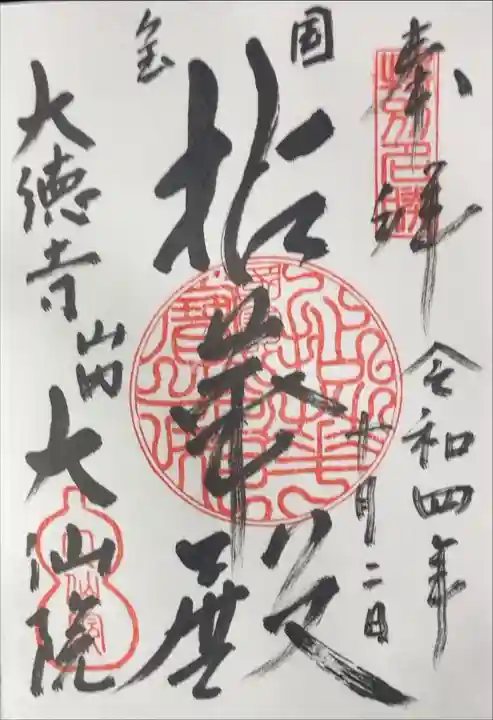 奉拝
特別名勝
令和四年
十月二日
国
宝
拈華殿
大徳寺
山内
大仙院